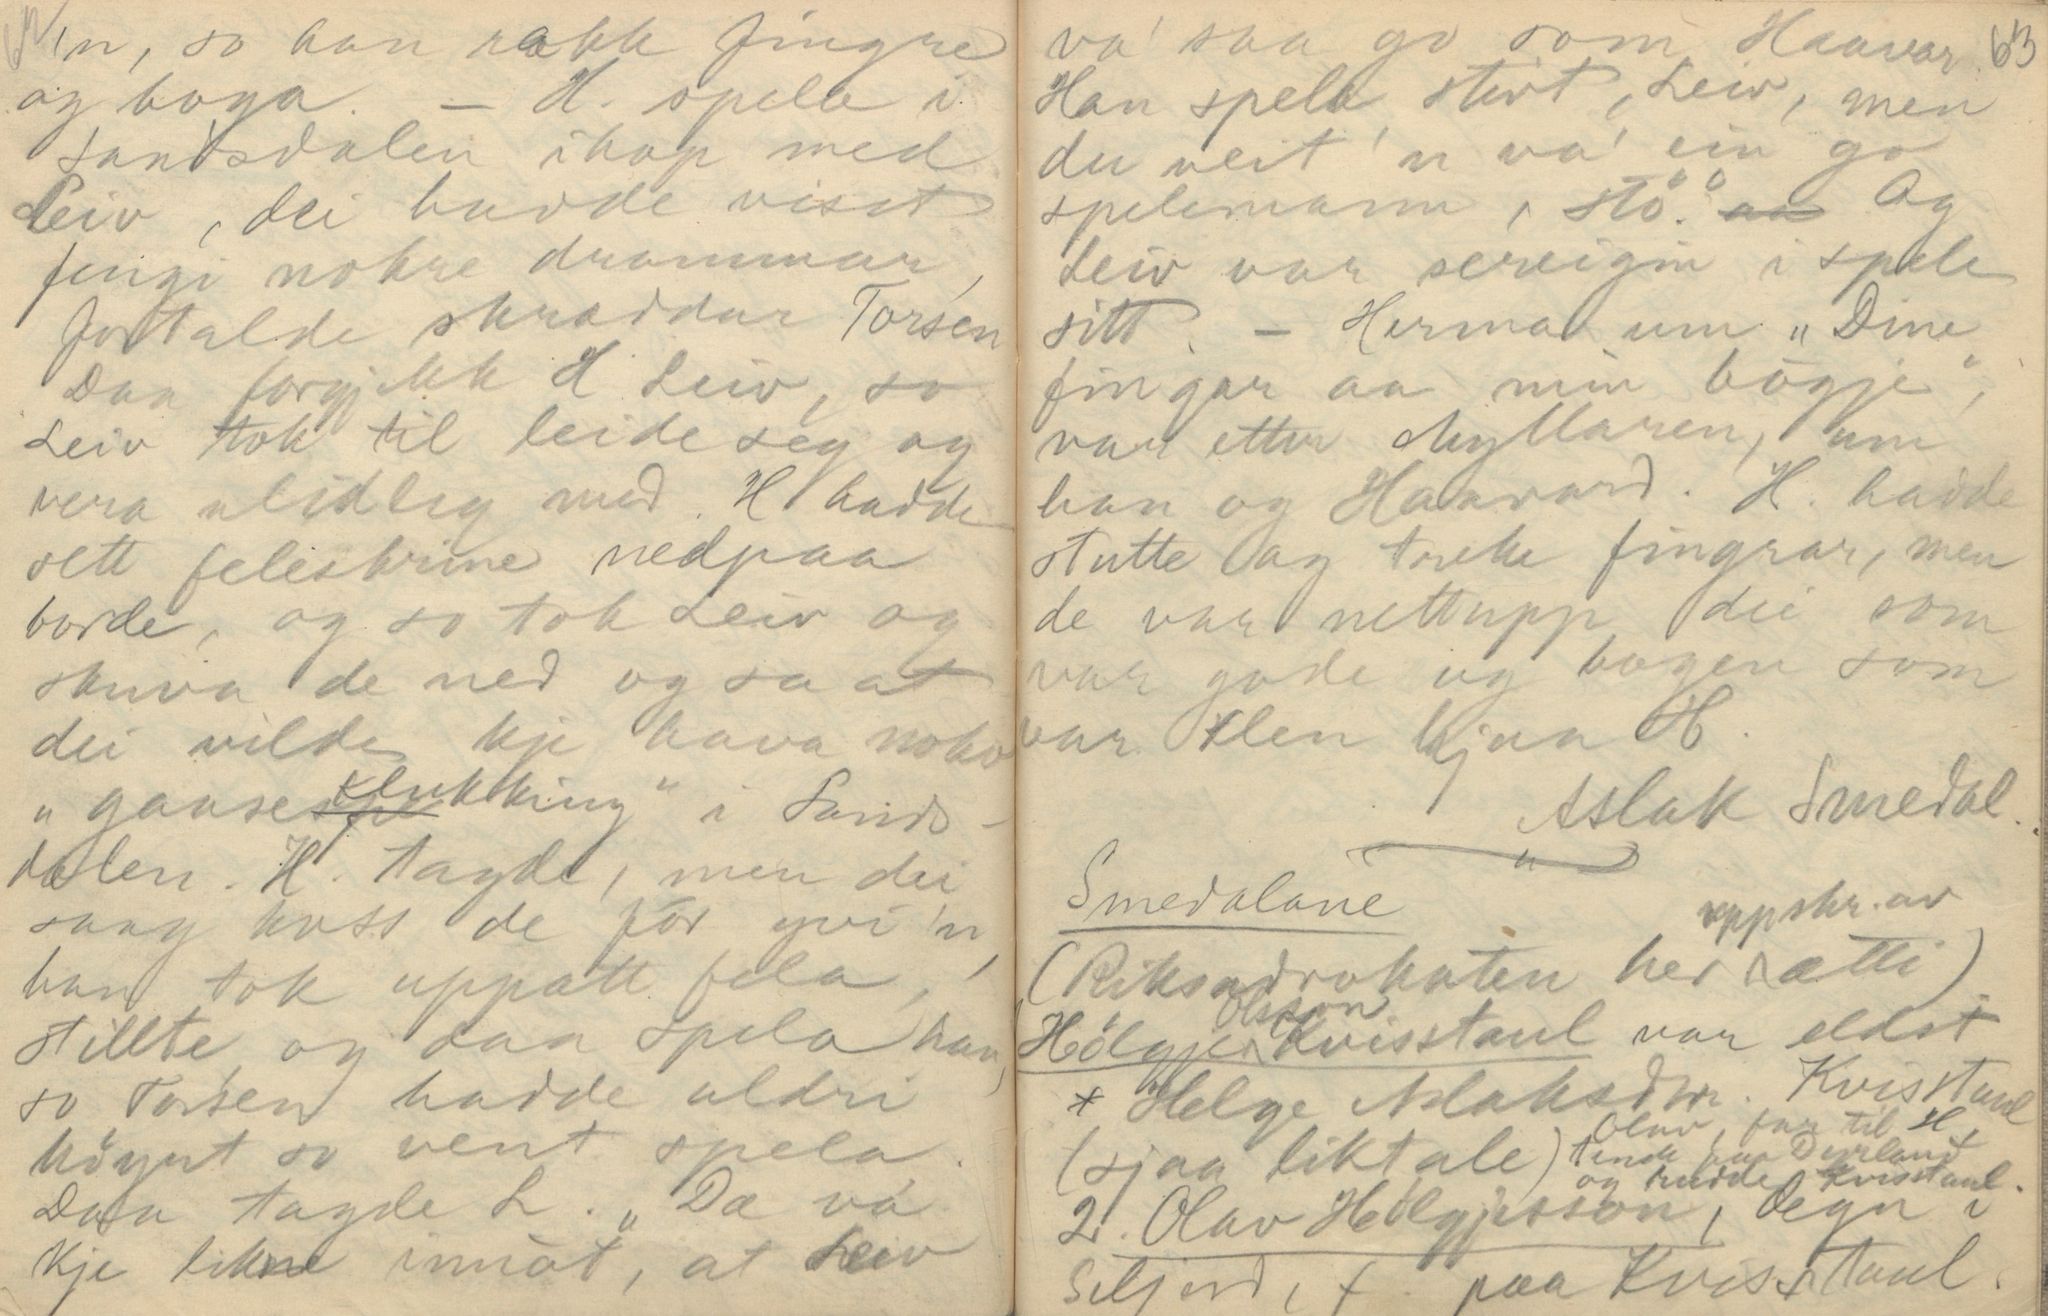 'n, so han rakk fingre
og boga. – H. spela i
Sandsdalen ihop med
Leiv, dei hadde visst
fengi nokre drammar,
fortalde skraddar Torsen
Daa forgjekk H Leiv, so
Leiv tok til leide seg og
vera ulidleg med. H hadde
sett feleskrine nedpaa
borde, og so tok Leiv og
skuva de ned og sa at
dei vilde kje hava noko
"gaasesklukking" i Sands-
dalen. H. tagde, men dei
saag koss de fór yvi 'n,
han tok uppatt fela,
stillte og daa spela han,
so Torsen hadde aldri
höyrt so vent spela.
Daa tagde L. "Dæ va
kje likne innåt, at Leiv
63
va' saa go som Haavar.
Han spela stirt, Leiv, men
du veit 'n va' ein go
spelemann, stö." Og
Leiv var sereigin i spele
sitt. – Herma um "Dine
fingar aa min bögje",
var etter Myllaren, um
han og Haavard. H. hadde
stutte og trekte fingrar, men
de var nettupp dei som
var gode og bogen som
var den hjaa H.
Aslak Smedal.
Smedalane
uppskr. av
(Riksadvokaten her ætti)
Olsson
Hölgje Kvisstaul var eldst
* Helge Aslaksdtr. Kvisstaul
(sjaa liktale)
Olav, far til H,
tente paa Dyrland
og rudde Kvisstaul.
2. Olav Hölgjesson, degn i
Seljord, f. paa Kvisstaul.